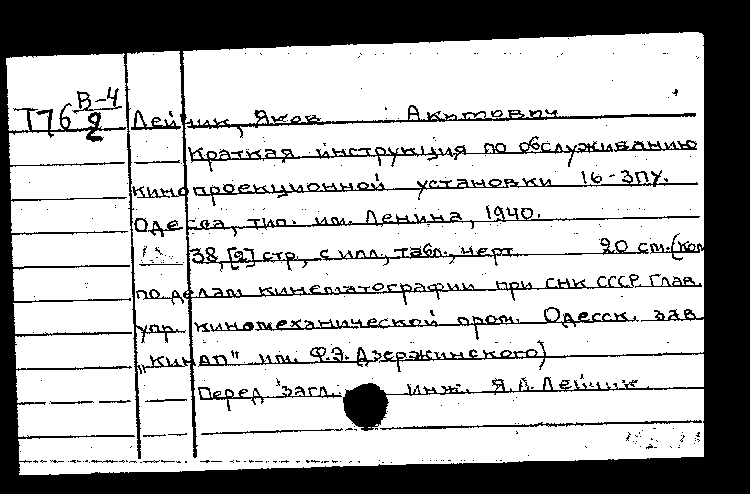 В-4
Т76 2
Лейчик, Яков Акимович
Краткая инструкция по обслуживанию
кинопроекционной установки 16-ЗПУ.
Одесса, тип. им. Ленина, 1940.
38, [2] стр, с илл., табл., черт. 20 см. (Ком
по делам кинематографии при СНК СССР. Глав.
упр. киномеханической пром. Одесск. зав.
„Кинап" им. Ф.Э. Дзержинского)
Перед загл. инж. Я.А. Лейчик.